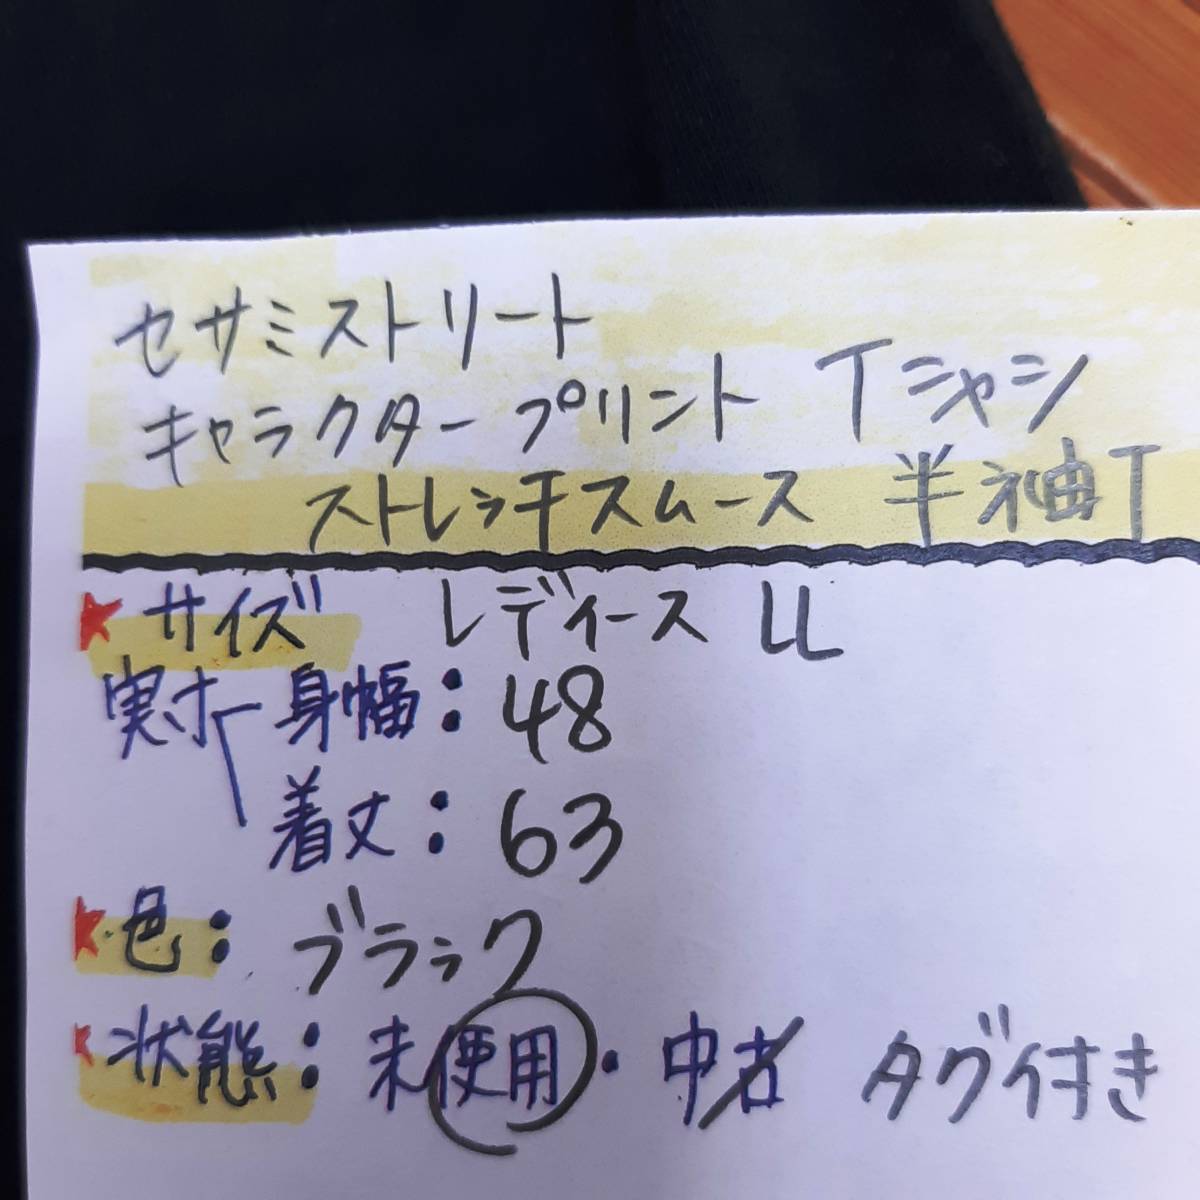 セサミストリート
キャラクタープリント Tシャシ
ストレッチスムース 半袖T
★サイズ レディース LL
実寸 身幅:48
着丈:63
★色:ブラック
★状態:未使用・中古 タグ付き